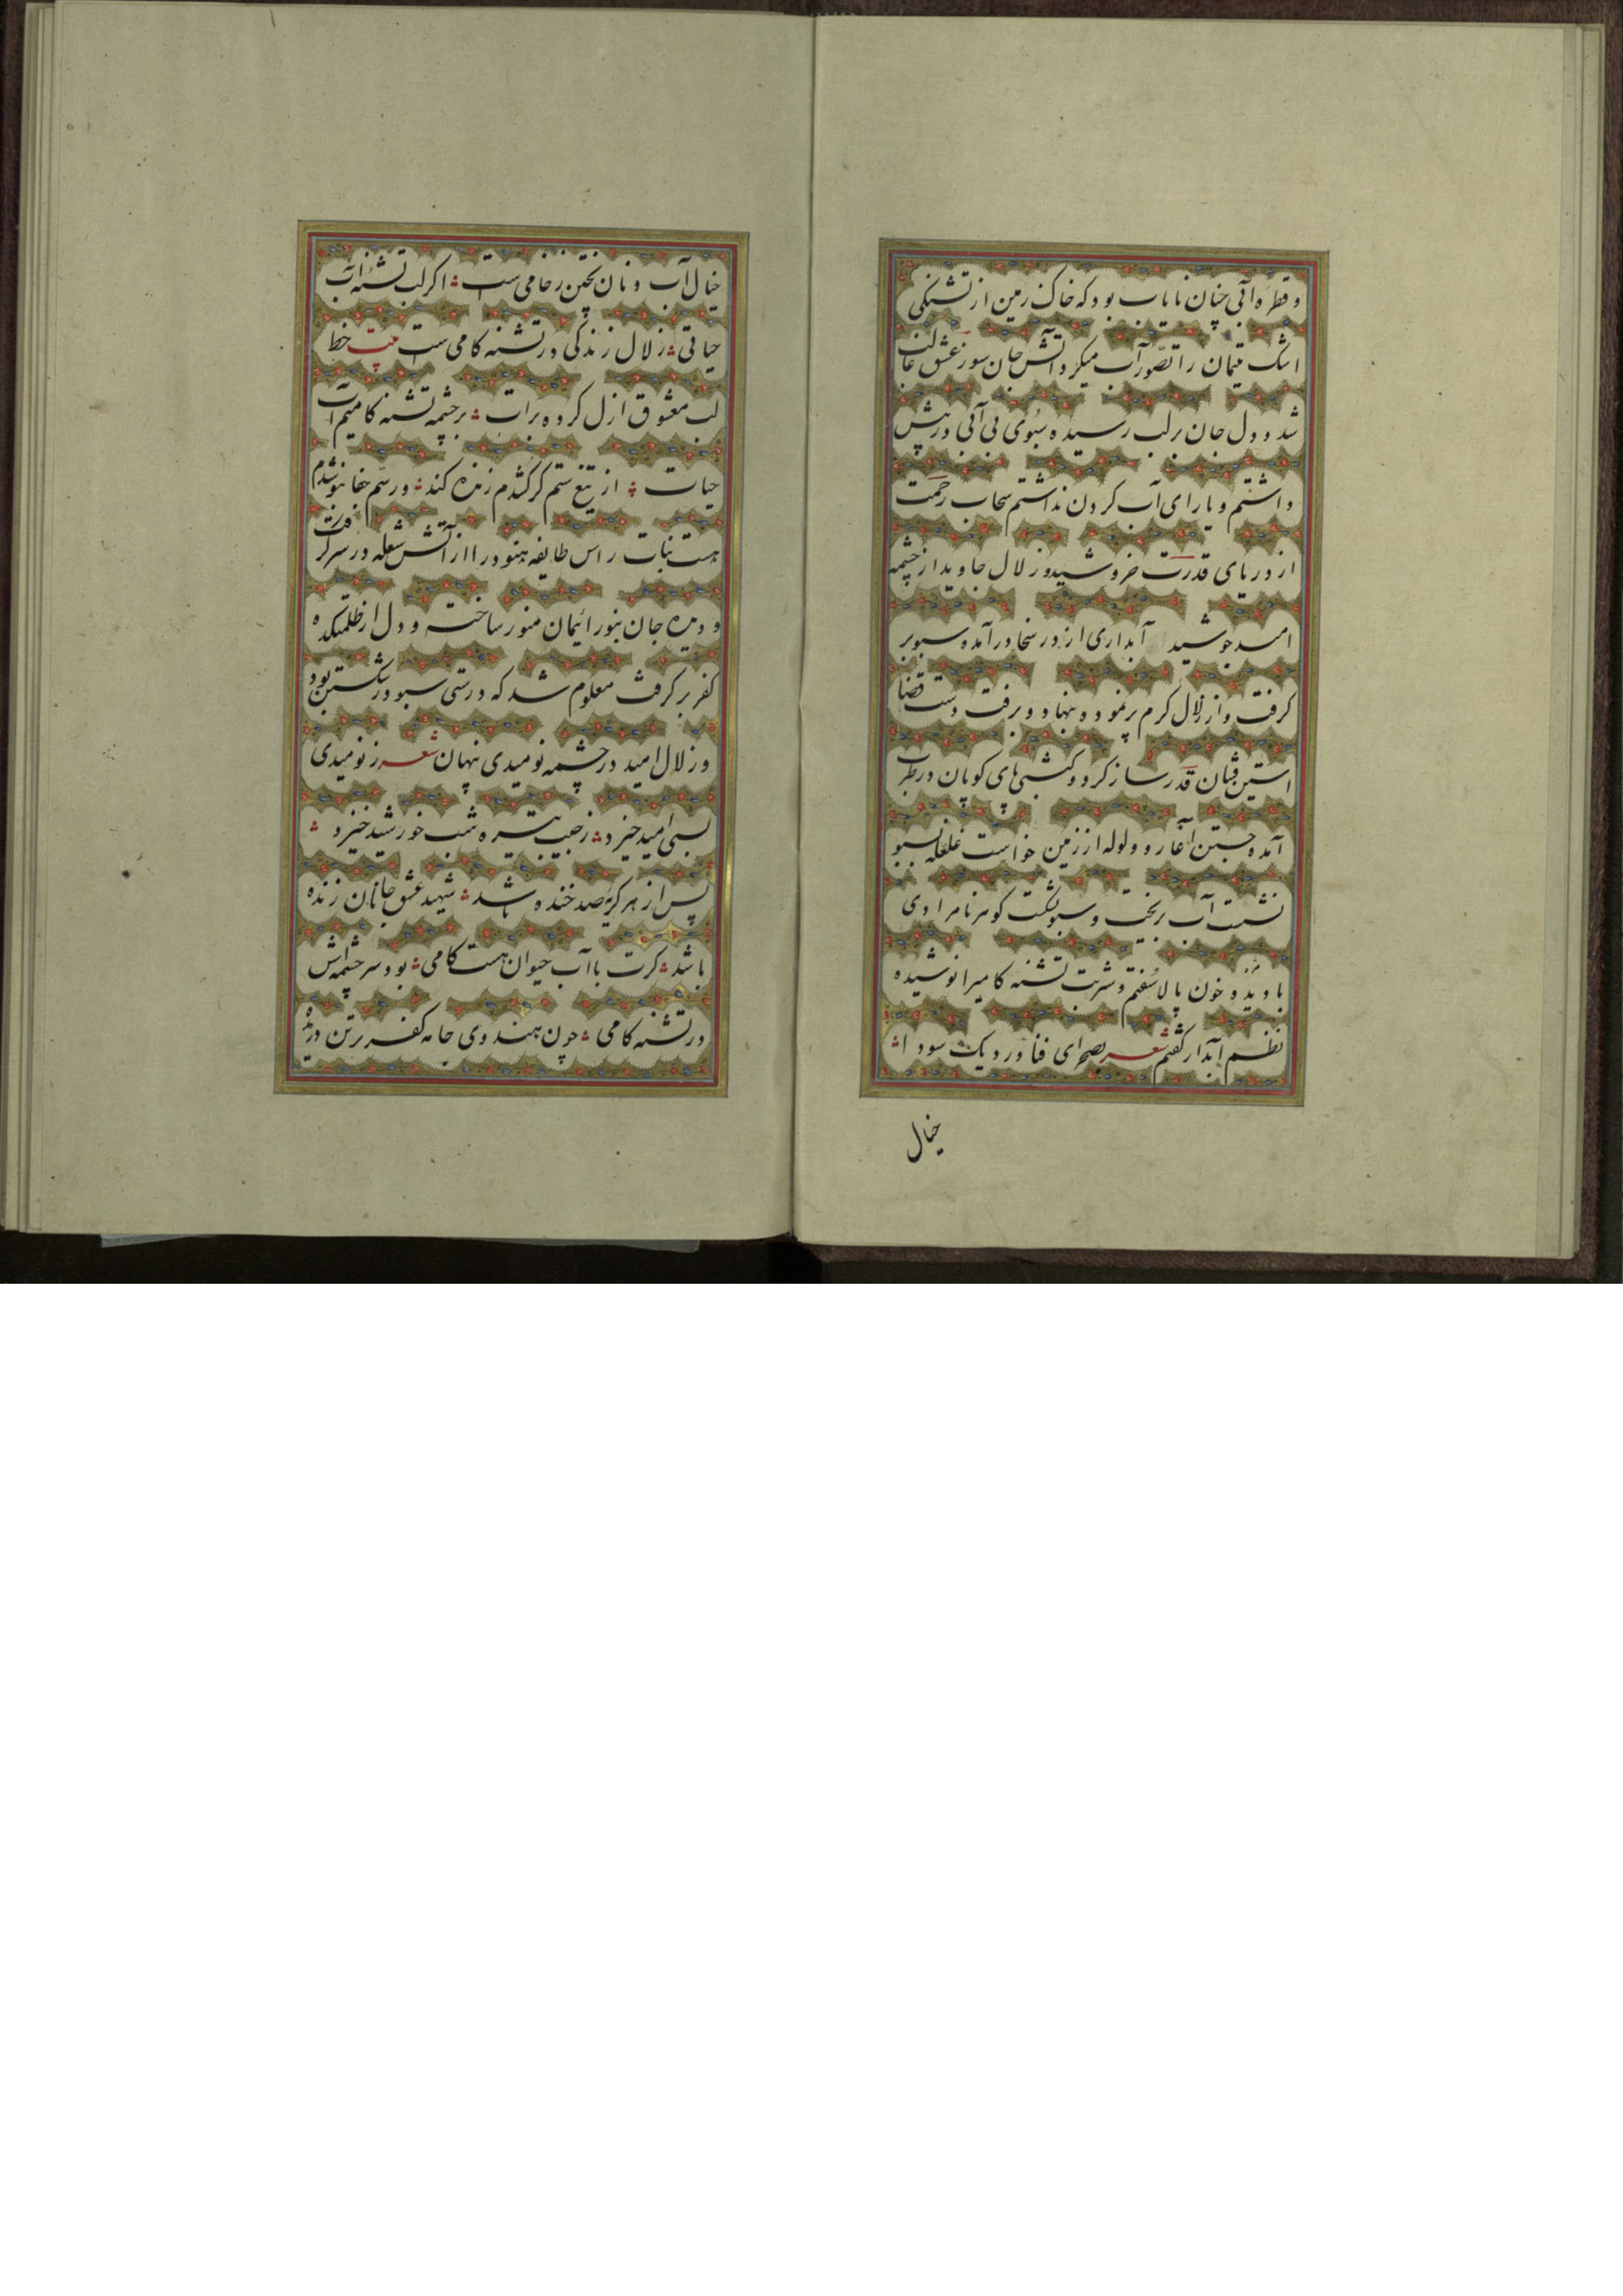 و قطره آبی چنان نایاب بود که خاک زمین از تشنگی
اشک یتیمان را تصور آب میکرد آتش جان سوز عشق غالب
شد و دل جان بر لب رسیده سبوی بی آبی در پیش
داشتم و یارای آب کردن نداشتم سحاب رحمت
از دریای قدرت خروشید و زلال جاوید از چشمه
امید جوشید آبداری از در سخا درآمده سبو بر
گرفت و از زلال کرم پر نموده بنهاد و برفت دست قضا
آستین فشان قدر ساز کرد و کشتی پای کوبان در طرب
آمده جستن آغاز و ولوله از زمین خواست غلغله بسبو
نشست آب ریخت و سبو بشکست گوهر نامرادی
با دیده خون پالا سفتم و شربت تشنه کامی را نوشیده
نظم آبدار گفتم شعر بصحرای فنا در دیک سودا
خیال
خیال آب و نان پختن ز خامی ست اگر لب تشنه آب
حیاتی زلال زندگی در تشنه کامی ست بیت خط
لب معشوق ازل کرده برات بر چشمه تشنه کامیم آب
حیات از تیغ ستم گر کشدم زنده کند ور سم جفا بنوشدم
هست نبات راس طایفه هنود را از آتش شعله در سر گرفت
و دیده جان بنور ایمان منور ساخت و دل از ظلمتکده
کفر بر گرفت معلوم شد که درستی سبو در شکستن بود
و زلال امید در چشمه نومیدی نهان شعر ز نومیدی
بسی امید خیزد ز جیب تیره شب خورشید خیزد
پس از هر گریه صد خنده باشد شهید عشق جانان زنده
باشد گرت با آب حیوان هست کامی بود سرچشمه اش
در تشنه کامی چون هندوی جامه کفر بر تن دریده